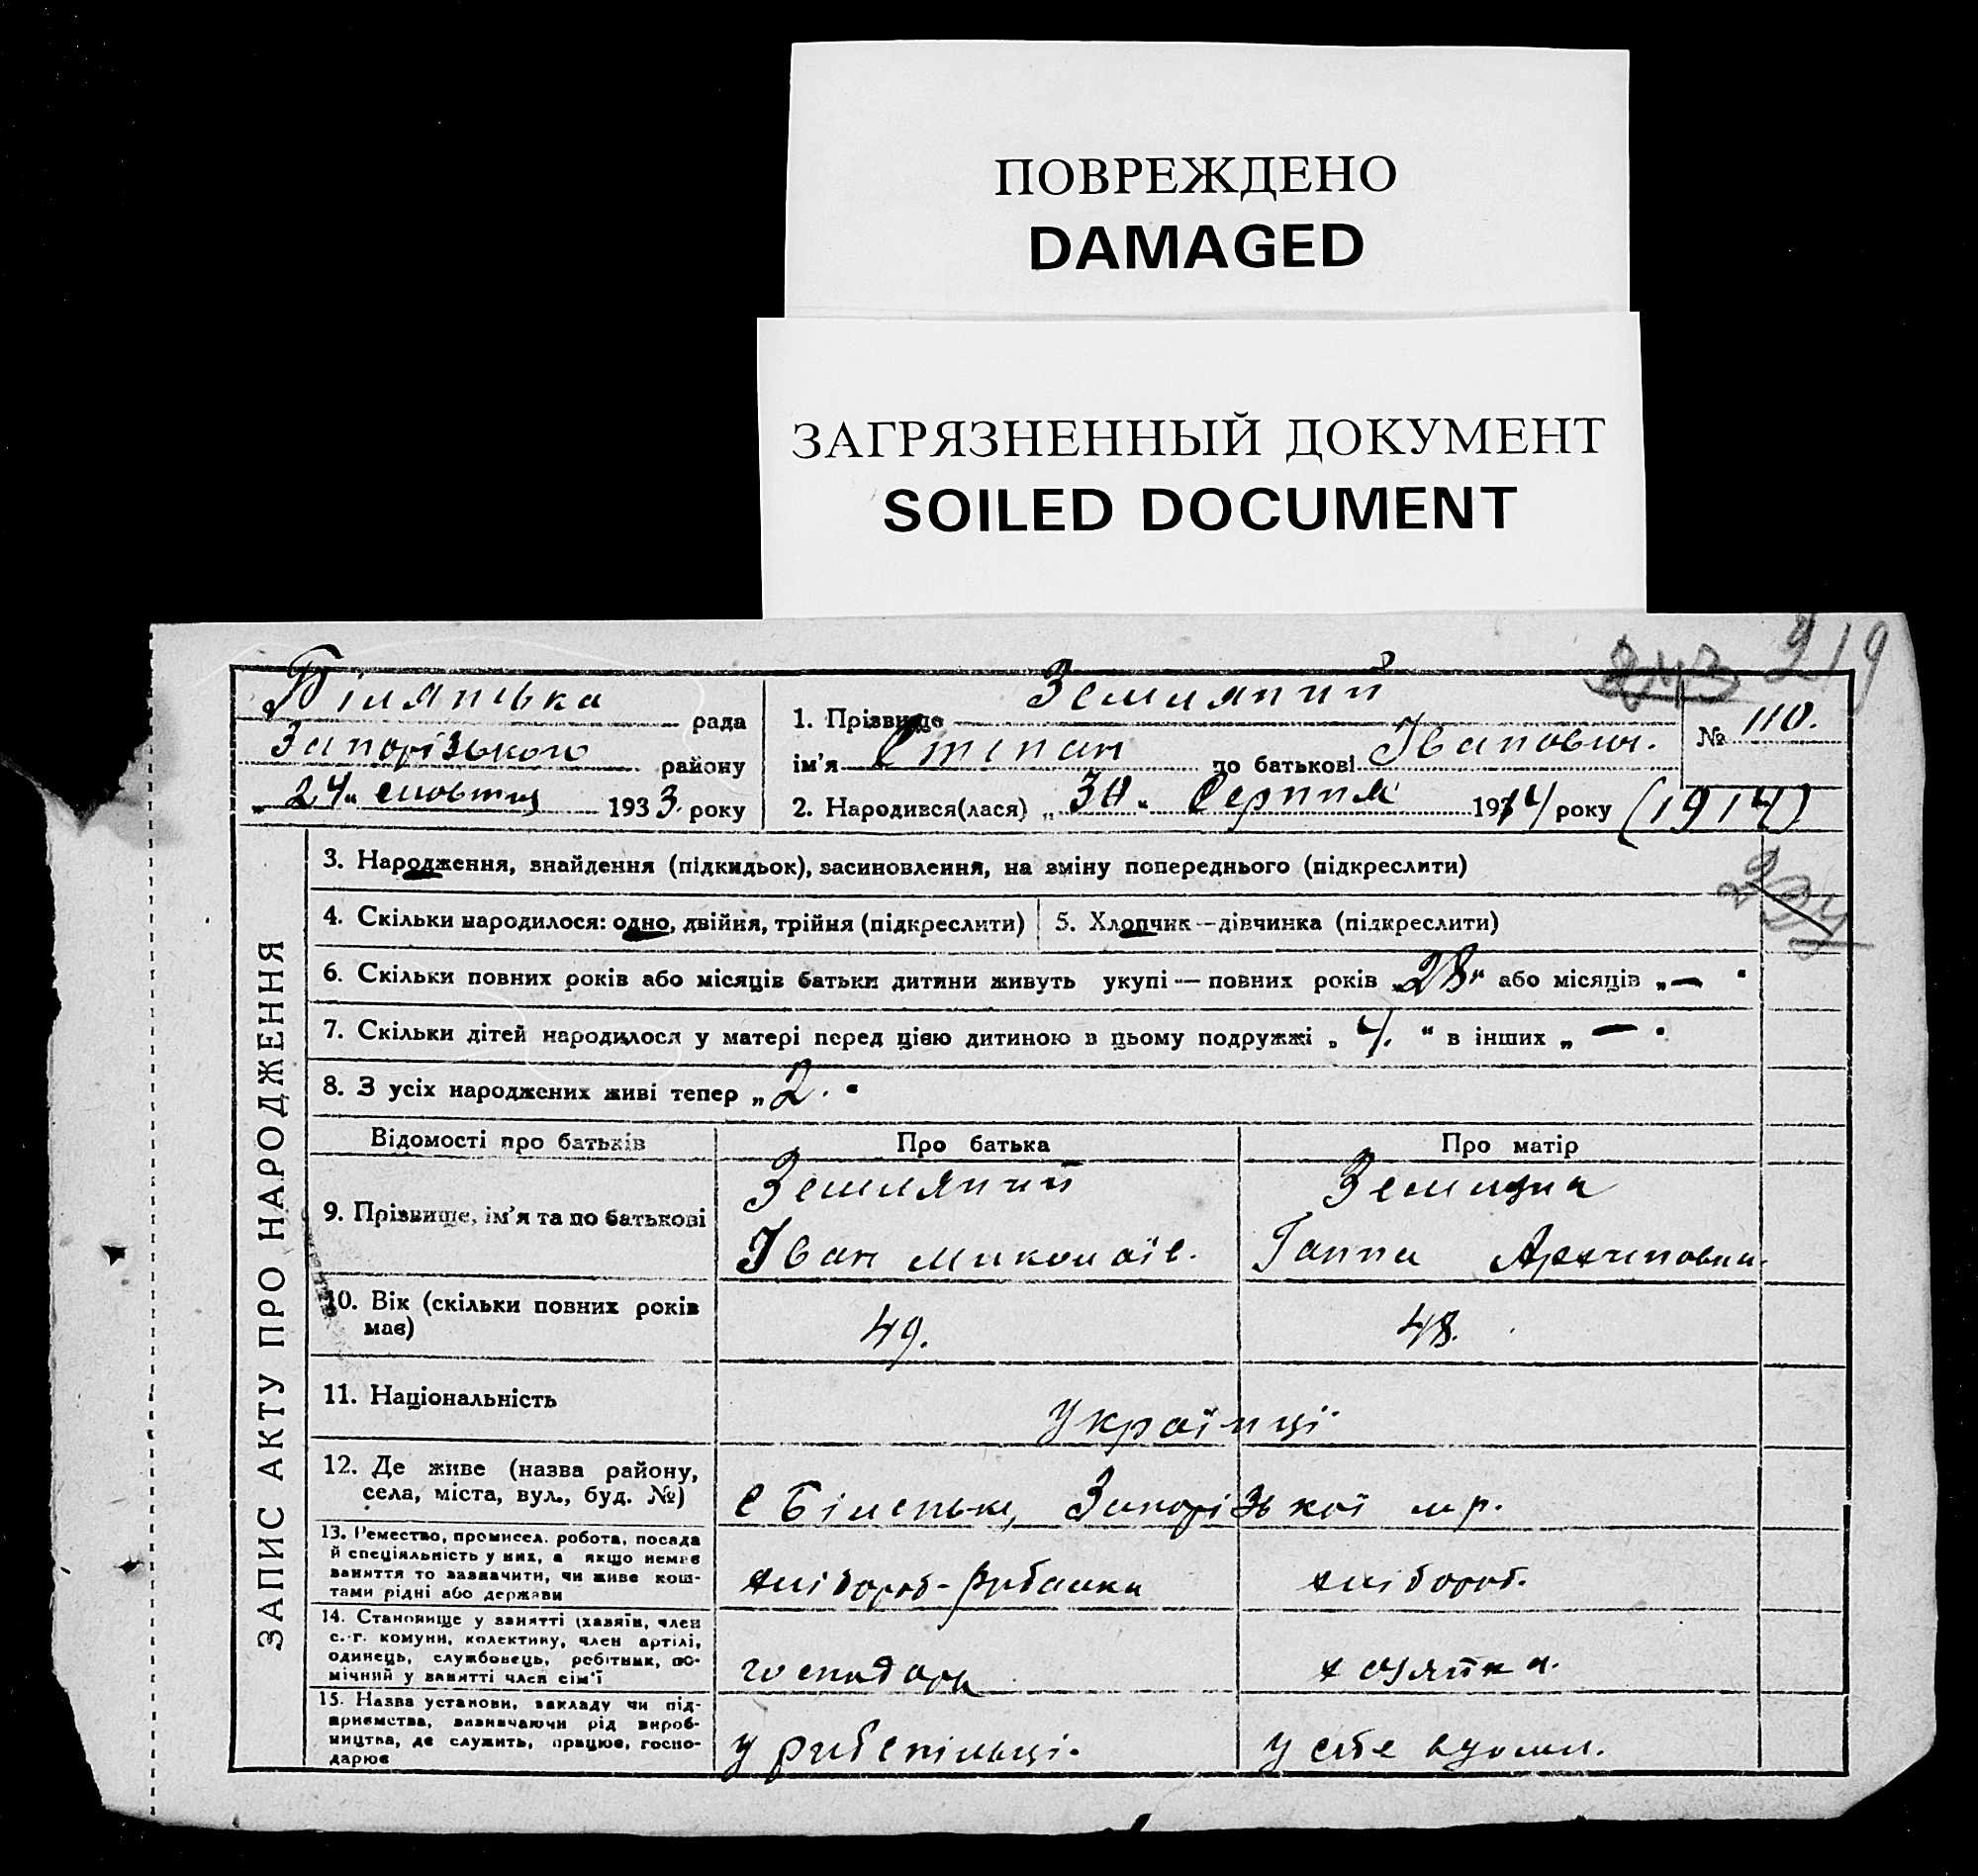 ПОВРЕЖДЕНО
DAMAGED
ЗАГРЯЗНЕННЫЙ ДОКУМЕНТ
SOILED DOCUMENT
243 219
Білянська рада
Запорізького району
„24“ жовтня 1933 року
1. Прізвище Земляний
ім'я Степан по батькові Іванович.
№ 110.
2. Народився(лася) „30“ Серпня 1914 року (1914)
ЗАПИС АКТУ ПРО НАРОДЖЕННЯ
3. Народження, знайдення (підкидьок), засиновлення, на зміну попереднього (підкреслити)
4. Скільки народилося: одно, двійня, трійня (підкреслити) 5. Хлопчик—дівчинка (підкреслити)
6. Скільки повних років або місяців батьки дитини живуть укупі — повних років „28“ або місяців „—“
7. Скільки дітей народилося у матері перед цією дитиною в цьому подружжі „4.“ в інших „—“
8. З усіх народжених живі тепер „2.“
Відомості про батьків Про батька Про матір
9. Прізвище, ім'я та по батькові
Земляний Земляна
Іван Миколаїв. Ганна Архиповна.
10. Вік (скільки повних років має) 49. 48.
11. Національність Українці
12. Де живе (назва району,
села, міста, вул., буд. №) с Біленьке, Запорізької м р.
13. Ремество, промисел, робота, посада
й спеціяльність у них, а якщо немає
заняття то зазначити, чи живе кош-
тами рідні або держави
хлібороб-рибалка хлібороб.
14. Становище у занятті (хазяїн, член
с.-г. комуни, колективу, член артілі,
одинець, службовець, робітник, по-
мічний у занятті член сім'ї
господар хазяйка.
15. Назва установи, закладу чи під-
приємства, визначаючи рід вироб-
ництва, де служить, працює, госпо-
дарює
у рибспільці. у себе вдома.